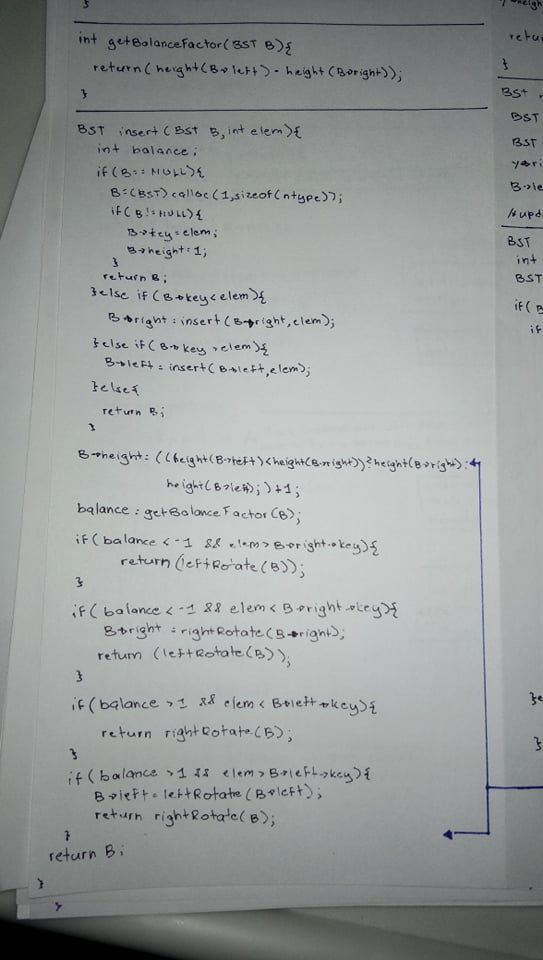 }
int getBalanceFactor(BST B){
return(height(B→left) - height(B→right));
}
BST insert(BST B, int elem){
int balance;
if(B == NULL){
B=(BST)calloc(1,sizeof(ntype));
if(B != NULL){
B→key = elem;
B→height = 1;
}
return B;
}else if(B→key < elem){
B→right = insert(B→right, elem);
}else if(B→key > elem){
B→left = insert(B→left, elem);
}else{
return B;
}
B→height = ((height(B→left) < height(B→right)) ? height(B→right) :
height(B→left);)+1;
balance = getBalanceFactor(B);
if(balance < -1 && elem > B→right→key){
return (leftRotate(B));
}
if(balance < -1 && elem < B→right→key){
B→right = rightRotate(B→right);
return (leftRotate(B));
}
if(balance > 1 && elem < B→left→key){
return rightRotate(B);
}
if(balance > 1 && elem > B→left→key){
B→left = leftRotate(B→left);
return rightRotate(B);
}
return B;
}
}
}
BST
BST
BST
BST
int
BST
if(B
if
}e
}